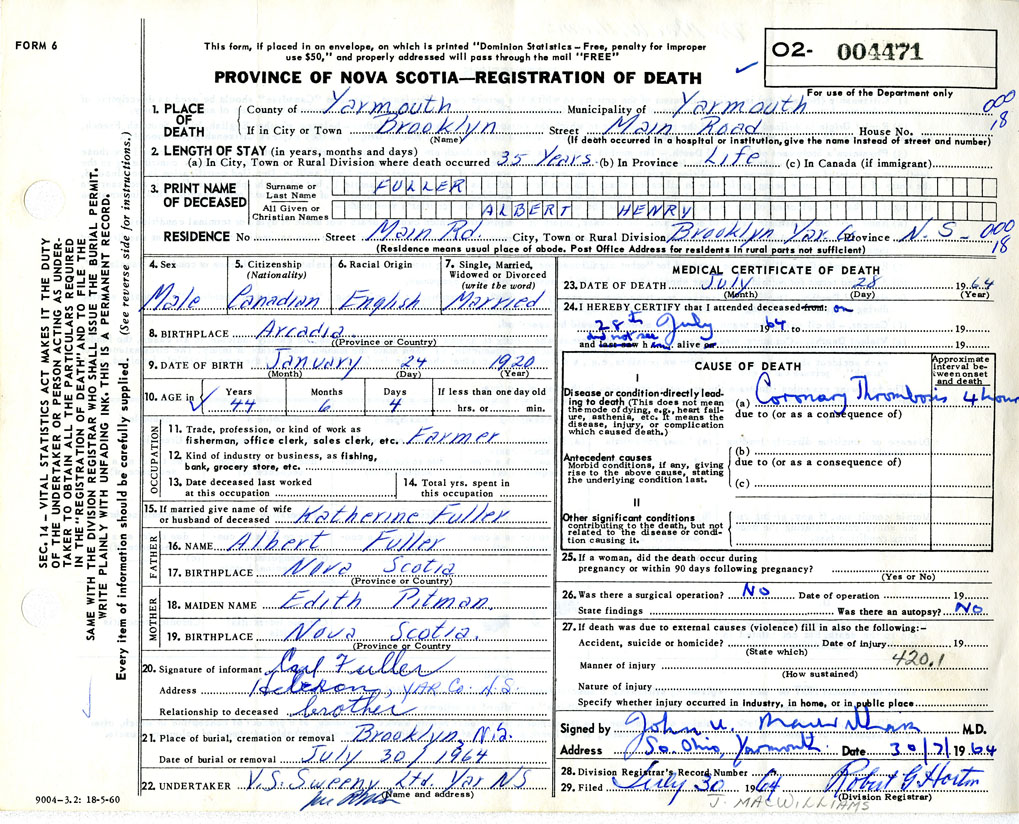 FORM 6
This form, if placed in an envelope, on which is printed "Dominion Statistics – Free, penalty for improper
use $50," and properly addressed will pass through the mail "FREE"
PROVINCE OF NOVA SCOTIA—REGISTRATION OF DEATH
O2- 004471
For use of the Department only
1. PLACE OF DEATH County of Yarmouth Municipality of Yarmouth 000
If in City or Town Brooklyn Street Main Road House No. 18
(Name) (If death occurred in a hospital or institution, give the name instead of street and number)
2. LENGTH OF STAY (in years, months and days)
(a) In City, Town or Rural Division where death occurred 35 Years (b) In Province Life (c) In Canada (if immigrant)
3. PRINT NAME OF DECEASED Surname or Last Name FULLER
All Given or Christian Names ALBERT HENRY
RESIDENCE No Street Main Rd. City, Town or Rural Division Brooklyn Yar. Co Province N. S– 000
(Residence means usual place of abode. Post Office Address for residents in rural parts not sufficient) 18
4. Sex Male
5. Citizenship (Nationality) Canadian
6. Racial Origin English
7. Single, Married, Widowed or Divorced (write the word) Married
8. BIRTHPLACE Arcadia
(Province or Country)
9. DATE OF BIRTH January 24 1920
(Month) (Day) (Year)
10. AGE in Years 44 Months 6 Days 4 If less than one day old hrs. or min.
OCCUPATION
11. Trade, profession, or kind of work as
fisherman, office clerk, sales clerk, etc. Farmer
12. Kind of industry or business, as fishing,
bank, grocery store, etc.
13. Date deceased last worked
at this occupation
14. Total yrs. spent in
this occupation
15. If married give name of wife
or husband of deceased Katherine Fuller
FATHER
16. NAME Albert Fuller
17. BIRTHPLACE Nova Scotia
(Province or Country)
MOTHER
18. MAIDEN NAME Edith Pitman
19. BIRTHPLACE Nova Scotia.
(Province or Country
20. Signature of informant Carl Fuller
Address Hebron, YAR Co. N.S.
Relationship to deceased brother
21. Place of burial, cremation or removal Brooklyn, N.S.
Date of burial or removal July 30/1964
22. UNDERTAKER V.S. Sweeny Ltd. Yar NS
(Name and address)
9004-3.2: 18-5-60
MEDICAL CERTIFICATE OF DEATH
23. DATE OF DEATH July 28 1964
(Month) (Day) (Year)
24. I HEREBY CERTIFY that I attended deceased from: on
28th July 1964 to 19
and last saw did not see him alive on 19
CAUSE OF DEATH
Approximate
interval between onset
and death
I
Disease or condition directly leading to death (This does not mean
the mode of dying, e.g., heart failure, asthenia, etc. It means the
disease, injury, or complication
which caused death.)
(a) Coronary Thrombosis 4 hour
due to (or as a consequence of)
Antecedent causes
Morbid conditions, if any, giving
rise to the above cause, stating
the underlying condition last.
(b)
due to (or as a consequence of)
(c)
II
Other significant conditions
contributing to the death, but not
related to the disease or condition causing it.
25. If a woman, did the death occur during
pregnancy or within 90 days following pregnancy?
(Yes or No)
26. Was there a surgical operation? No Date of operation 19
State findings Was there an autopsy? No
27. If death was due to external causes (violence) fill in also the following:–
Accident, suicide or homicide? Date of injury 19
(State which) 420.1
Manner of injury
(How sustained)
Nature of injury
Specify whether injury occurred in industry, in home, or in public place
Signed by John M.D.
Address So. Ohio, Yarmouth Date 30/7/1964
28. Division Registrar's Record Number
29. Filed July 30 1964 Robert G. Horton
(Division Registrar)
J. MACWILLIAMS
SEC. 14 – VITAL STATISTICS ACT MAKES IT THE DUTY
OF THE UNDERTAKER OR PERSON ACTING AS UNDERTAKER TO OBTAIN ALL THE PARTICULARS REQUIRED
IN THE "REGISTRATION OF DEATH" AND TO FILE THE
SAME WITH THE DIVISION REGISTRAR WHO SHALL ISSUE THE BURIAL PERMIT.
WRITE PLAINLY WITH UNFADING INK. THIS IS A PERMANENT RECORD.
Every item of information should be carefully supplied. (See reverse side for instructions.)